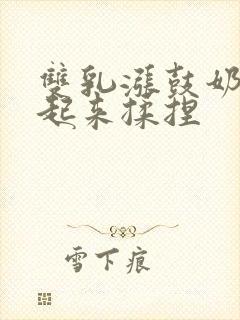 雙乳漲鼓奶
起来揉捏
雪下痕